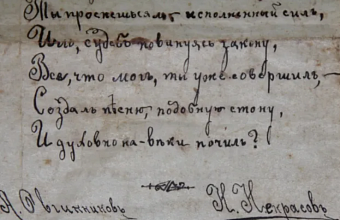 Ты проснешься ль исполненный силъ,
Иль, судебъ повинуясь закону,
Все, что могъ, ты уже совершилъ, —
Создалъ пѣсню, подобную стону,
И духовно на-вѣки почилъ?
А. Овчинниковъ
Н. Некрасовъ